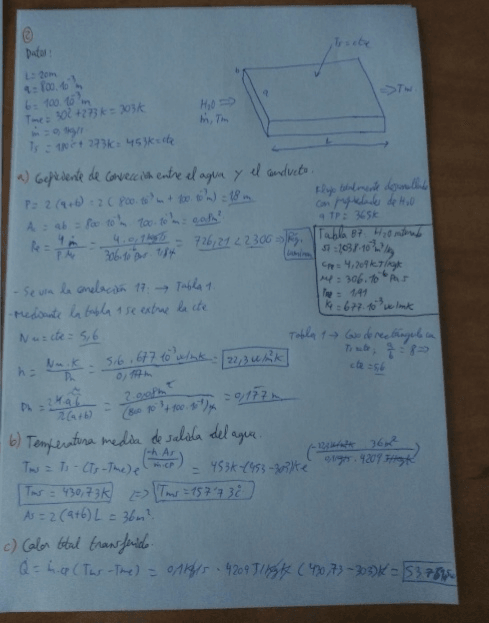 ②
Datos:
L = 20m
a = 800·10⁻³m
b = 100·10⁻³m
Tme = 30ºC+273K = 303K
ṁ = 0,1kg/s
Ts = 180ºC + 273K = 453K = cte
Ts = cte
b
a
H₂O ⇒
ṁ, Tm
⇒ Tms
L
a) Coeficiente de convección entre el agua y el conducto.
P = 2(a+b) = 2(800·10⁻³m + 100·10⁻³m) = 1,8m
Ac = ab = 800·10⁻³m · 100·10⁻³m = 0,08m²
Re = 4ṁ / P·μ = 4·0,1kg/s / 306·10⁻⁶Pa·s · 1,8m = 726,21 < 2300 ⇒ Rég. laminar
Flujo totalmente desarrollado
con propiedades de H₂O
a TP = 365K
Tabla B7. H₂O saturada
= 4,209 KJ/kgK
= 306·10⁻⁶ Pa·s
= 1,91
= 677·10⁻³ w/mK
- Se usa la correlación 17. → Tabla 1
- Mediante la tabla 1 se extrae la cte
Nu = cte = 5,6
Tabla 1 → Caso de rectángulo con
Ts cte, a/b = 8 ⇒
cte = 5,6
h = Nu·K / Dh = 5,6·677·10⁻³w/mK / 0,177m = 21,3 w/m²K
Dh = 4ab / 2(a+b) = 2·0,08m² / (800·10⁻³+100·10⁻³)m = 0,177m
b) Temperatura media de salida del agua.
Tms = Ts - (Ts - Tme) e^(-h As / ṁ·cp) = 453K-(453-303)K e^( · 36m² / 0,1kg/s · 4209 J/kgK)
Tms = 430,73K ⇒ Tms = 157'73ºC
As = 2(a+b)L = 36m².
c) Calor total transferido.
Q = ṁ·cp (Tms - Tme) = 0,1kg/s · 4209 J/kgK (430,73 - 303)K =